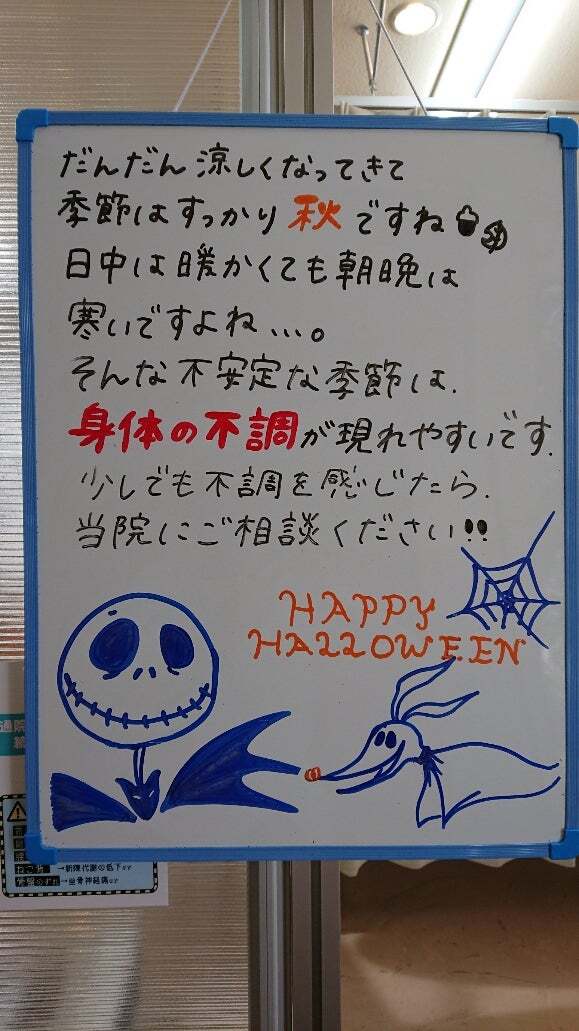 だんだん涼しくなってきて
季節はすっかり秋ですね
日中は暖かくても朝晩は
寒いですよね、、、。
そんな不安定な季節は、
身体の不調が現れやすいです。
少しでも不調を感じたら、
当院にご相談ください!!
HAPPY
HALLOWEEN
通院
→新陳代謝の低下or
→坐骨神経痛or